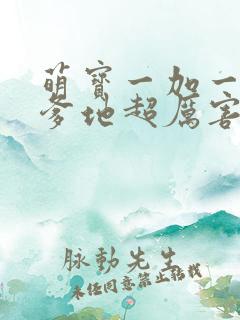 萌寶一加一
爹地超厲害
脉動先生
未经同意禁止转载